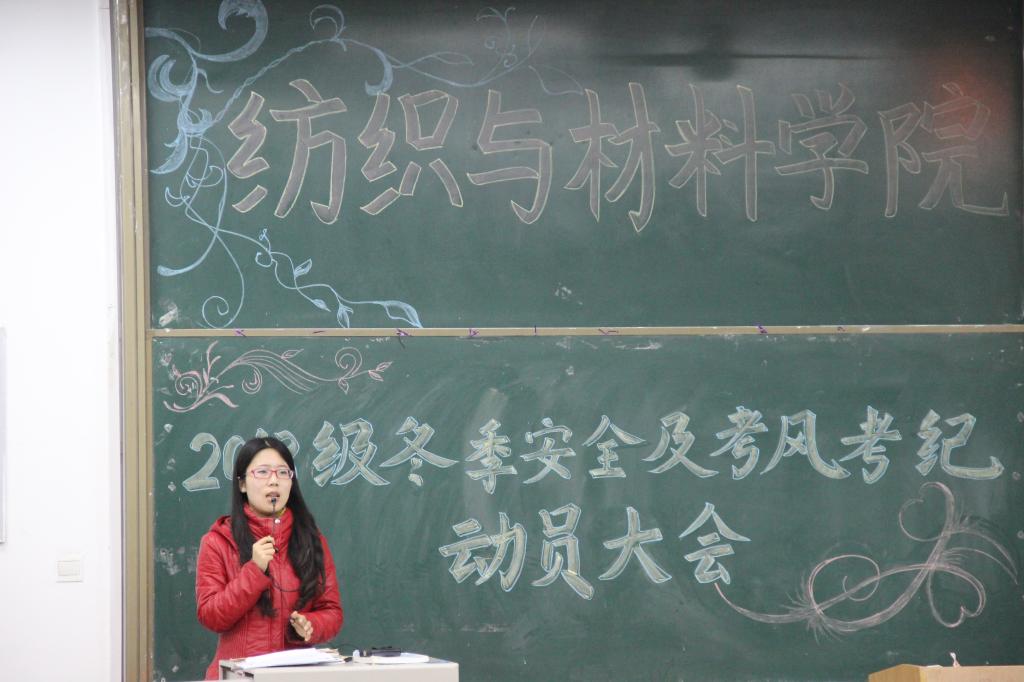 纺织与材料学院
2012级冬季安全及考风考纪
动员大会